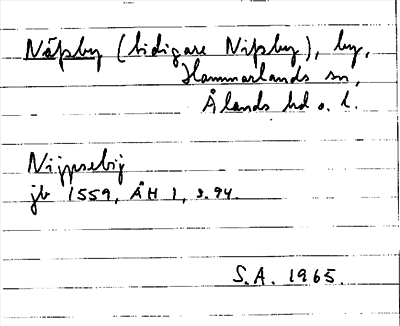 Näfsby (tidigare Nifsby), by,
Hammarlands sn,
Ålands hd o. l.
Nijpsebij
jb 1559, ÅH 1, s. 94.
S.A. 1965.